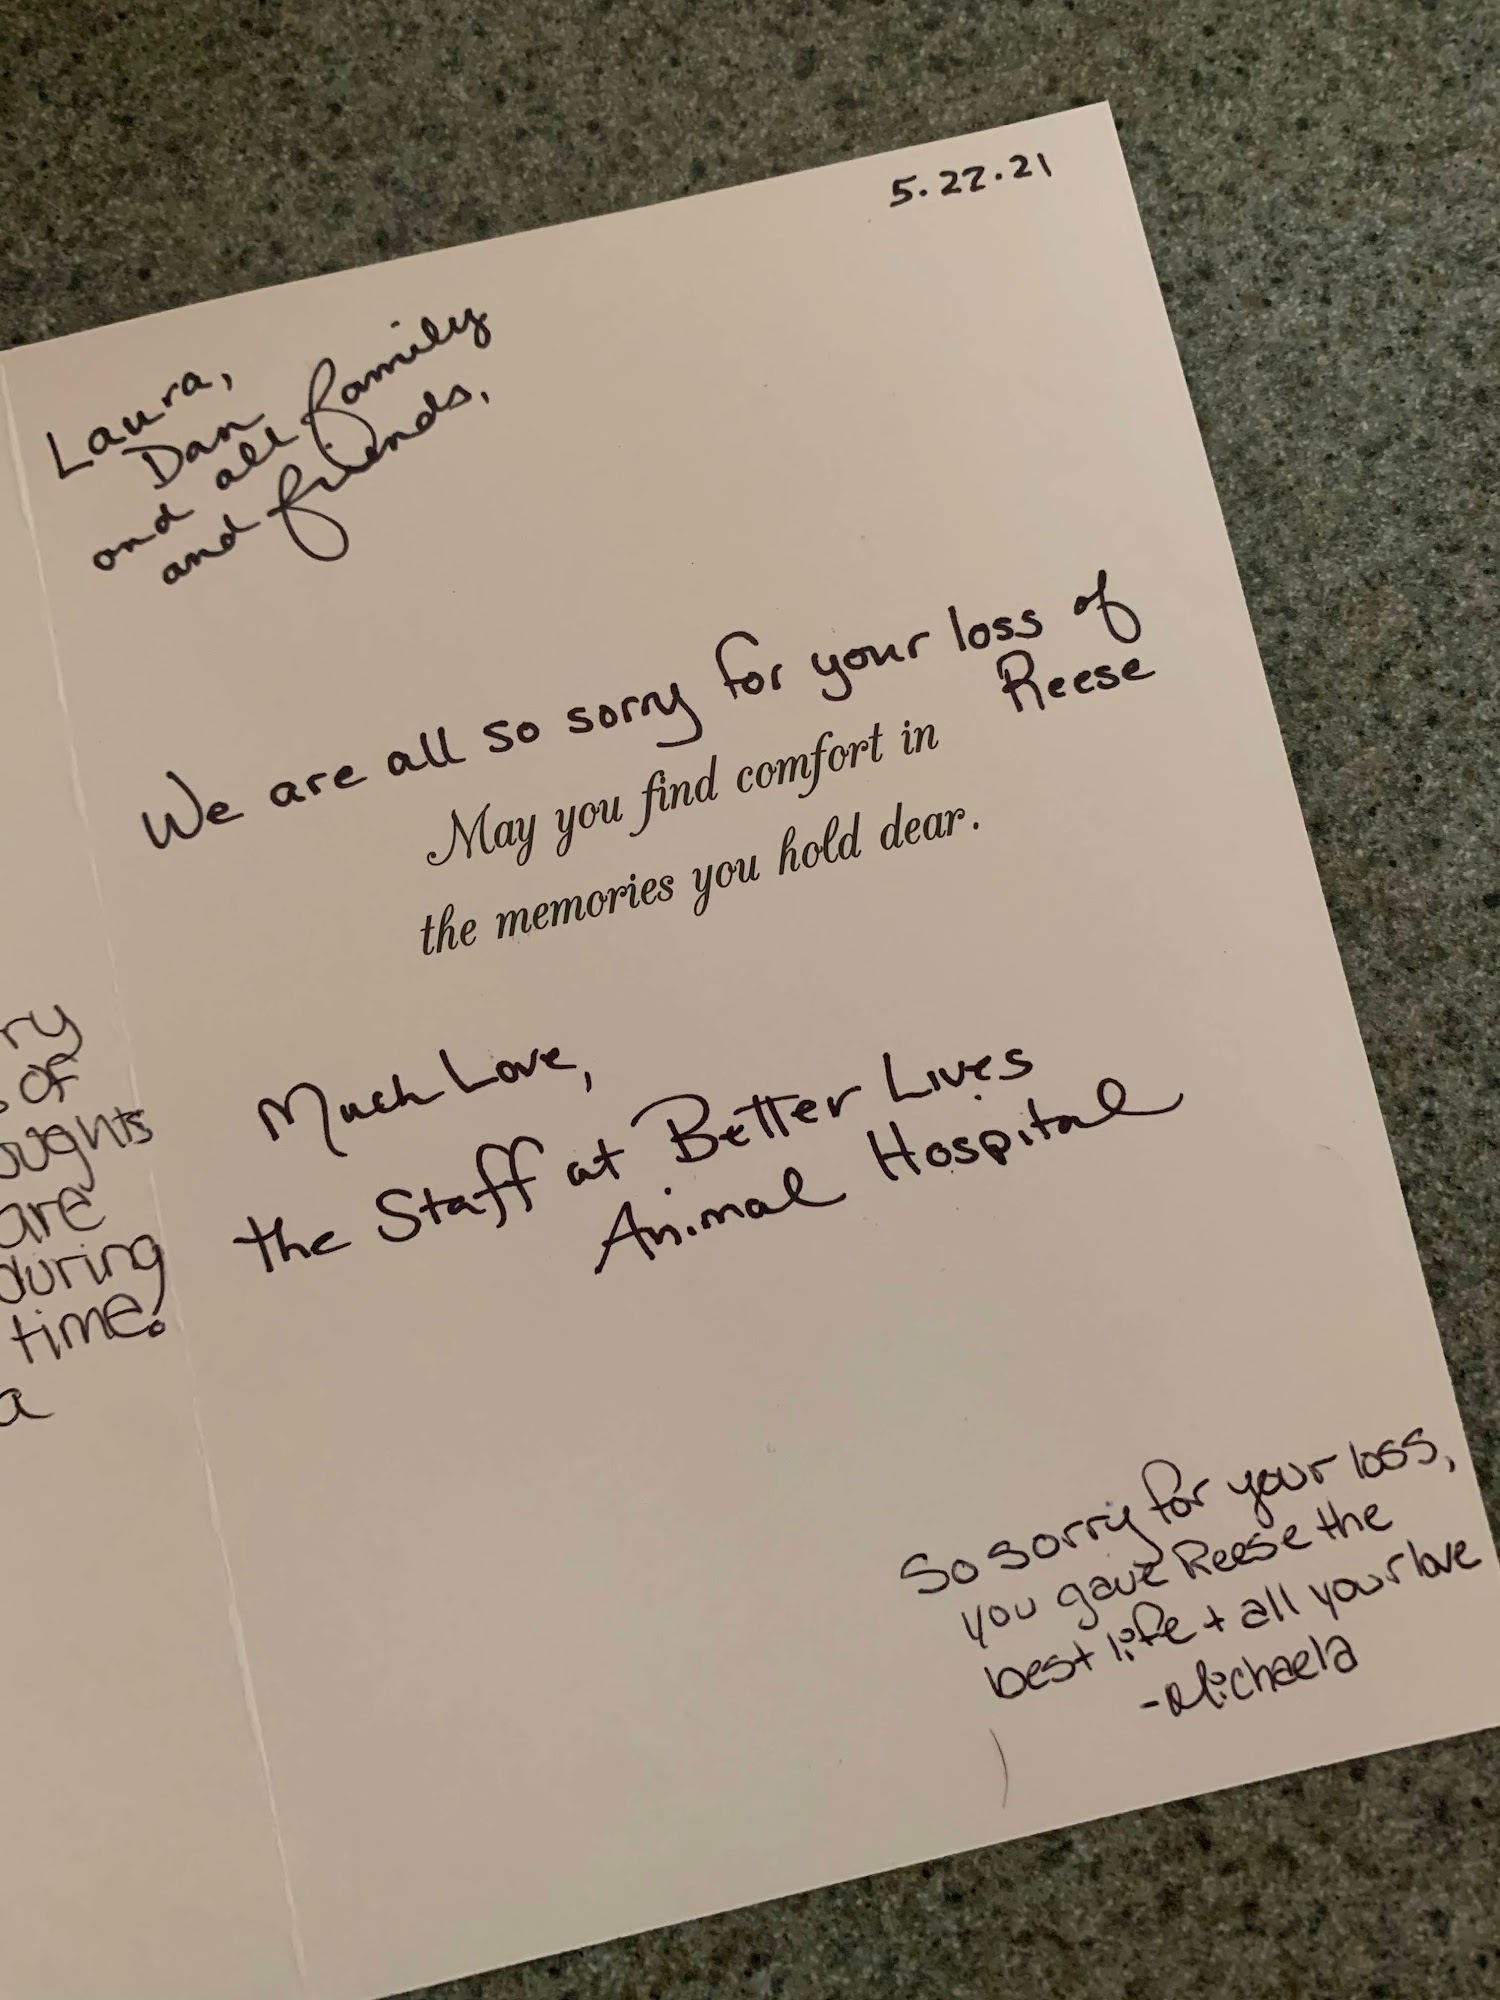 5.22.21
Laura,
Dan
and all family
and friends,
We are all so sorry for your loss of
Reese
May you find comfort in
the memories you hold dear.
Much Love,
the Staff at Better Lives
Animal Hospital
So sorry for your loss,
you gave Reese the
best life + all your love
-Michaela
ry
of
oughts
are
during
time.
a